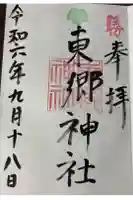 奉拝
東郷神社
令和六年九月十八日